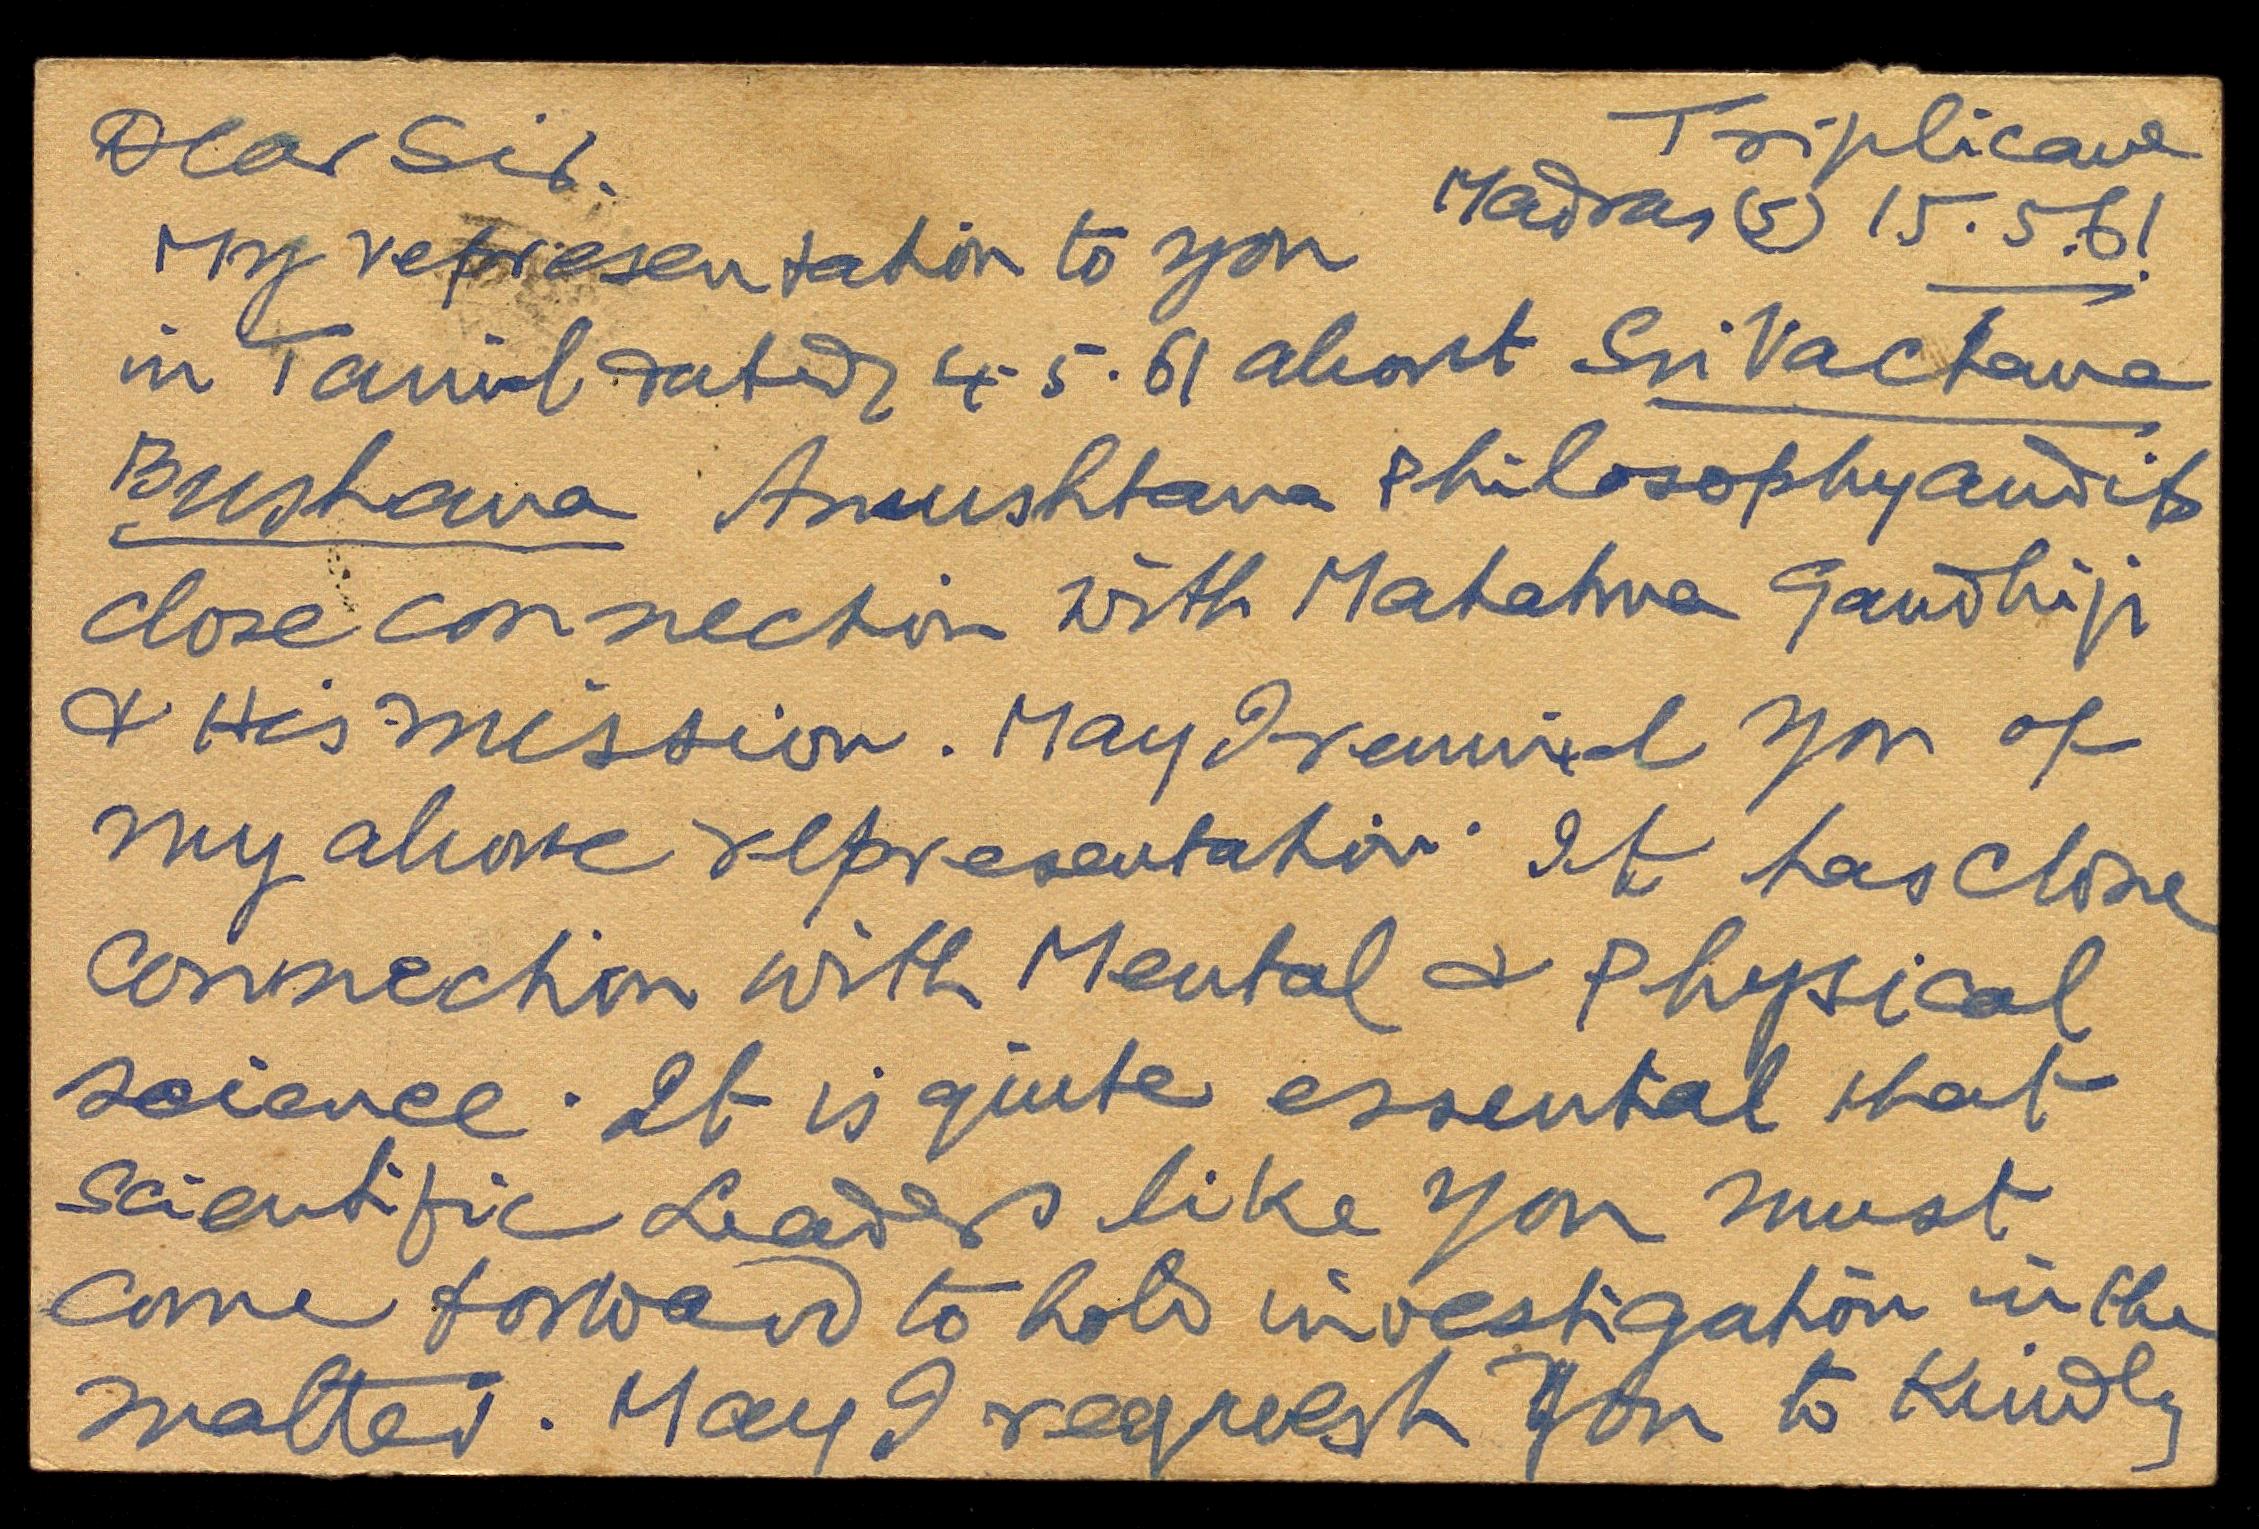 Triplicane
Madras (5) 15.5.61
Dear Sir.
My representation to you
in Tamil dated 4-5.61 about Sri Vachana
Bushana Anushtana Philosophy and its
close connection with Mahatma Gandhiji
& His mission. May I remind you of
my above representation. It has close
connection with Mental & Physical
science. It is quite essental that
Scientific Leaders like you must
come forward to hold investigation in the
matter. May I request you to kindly